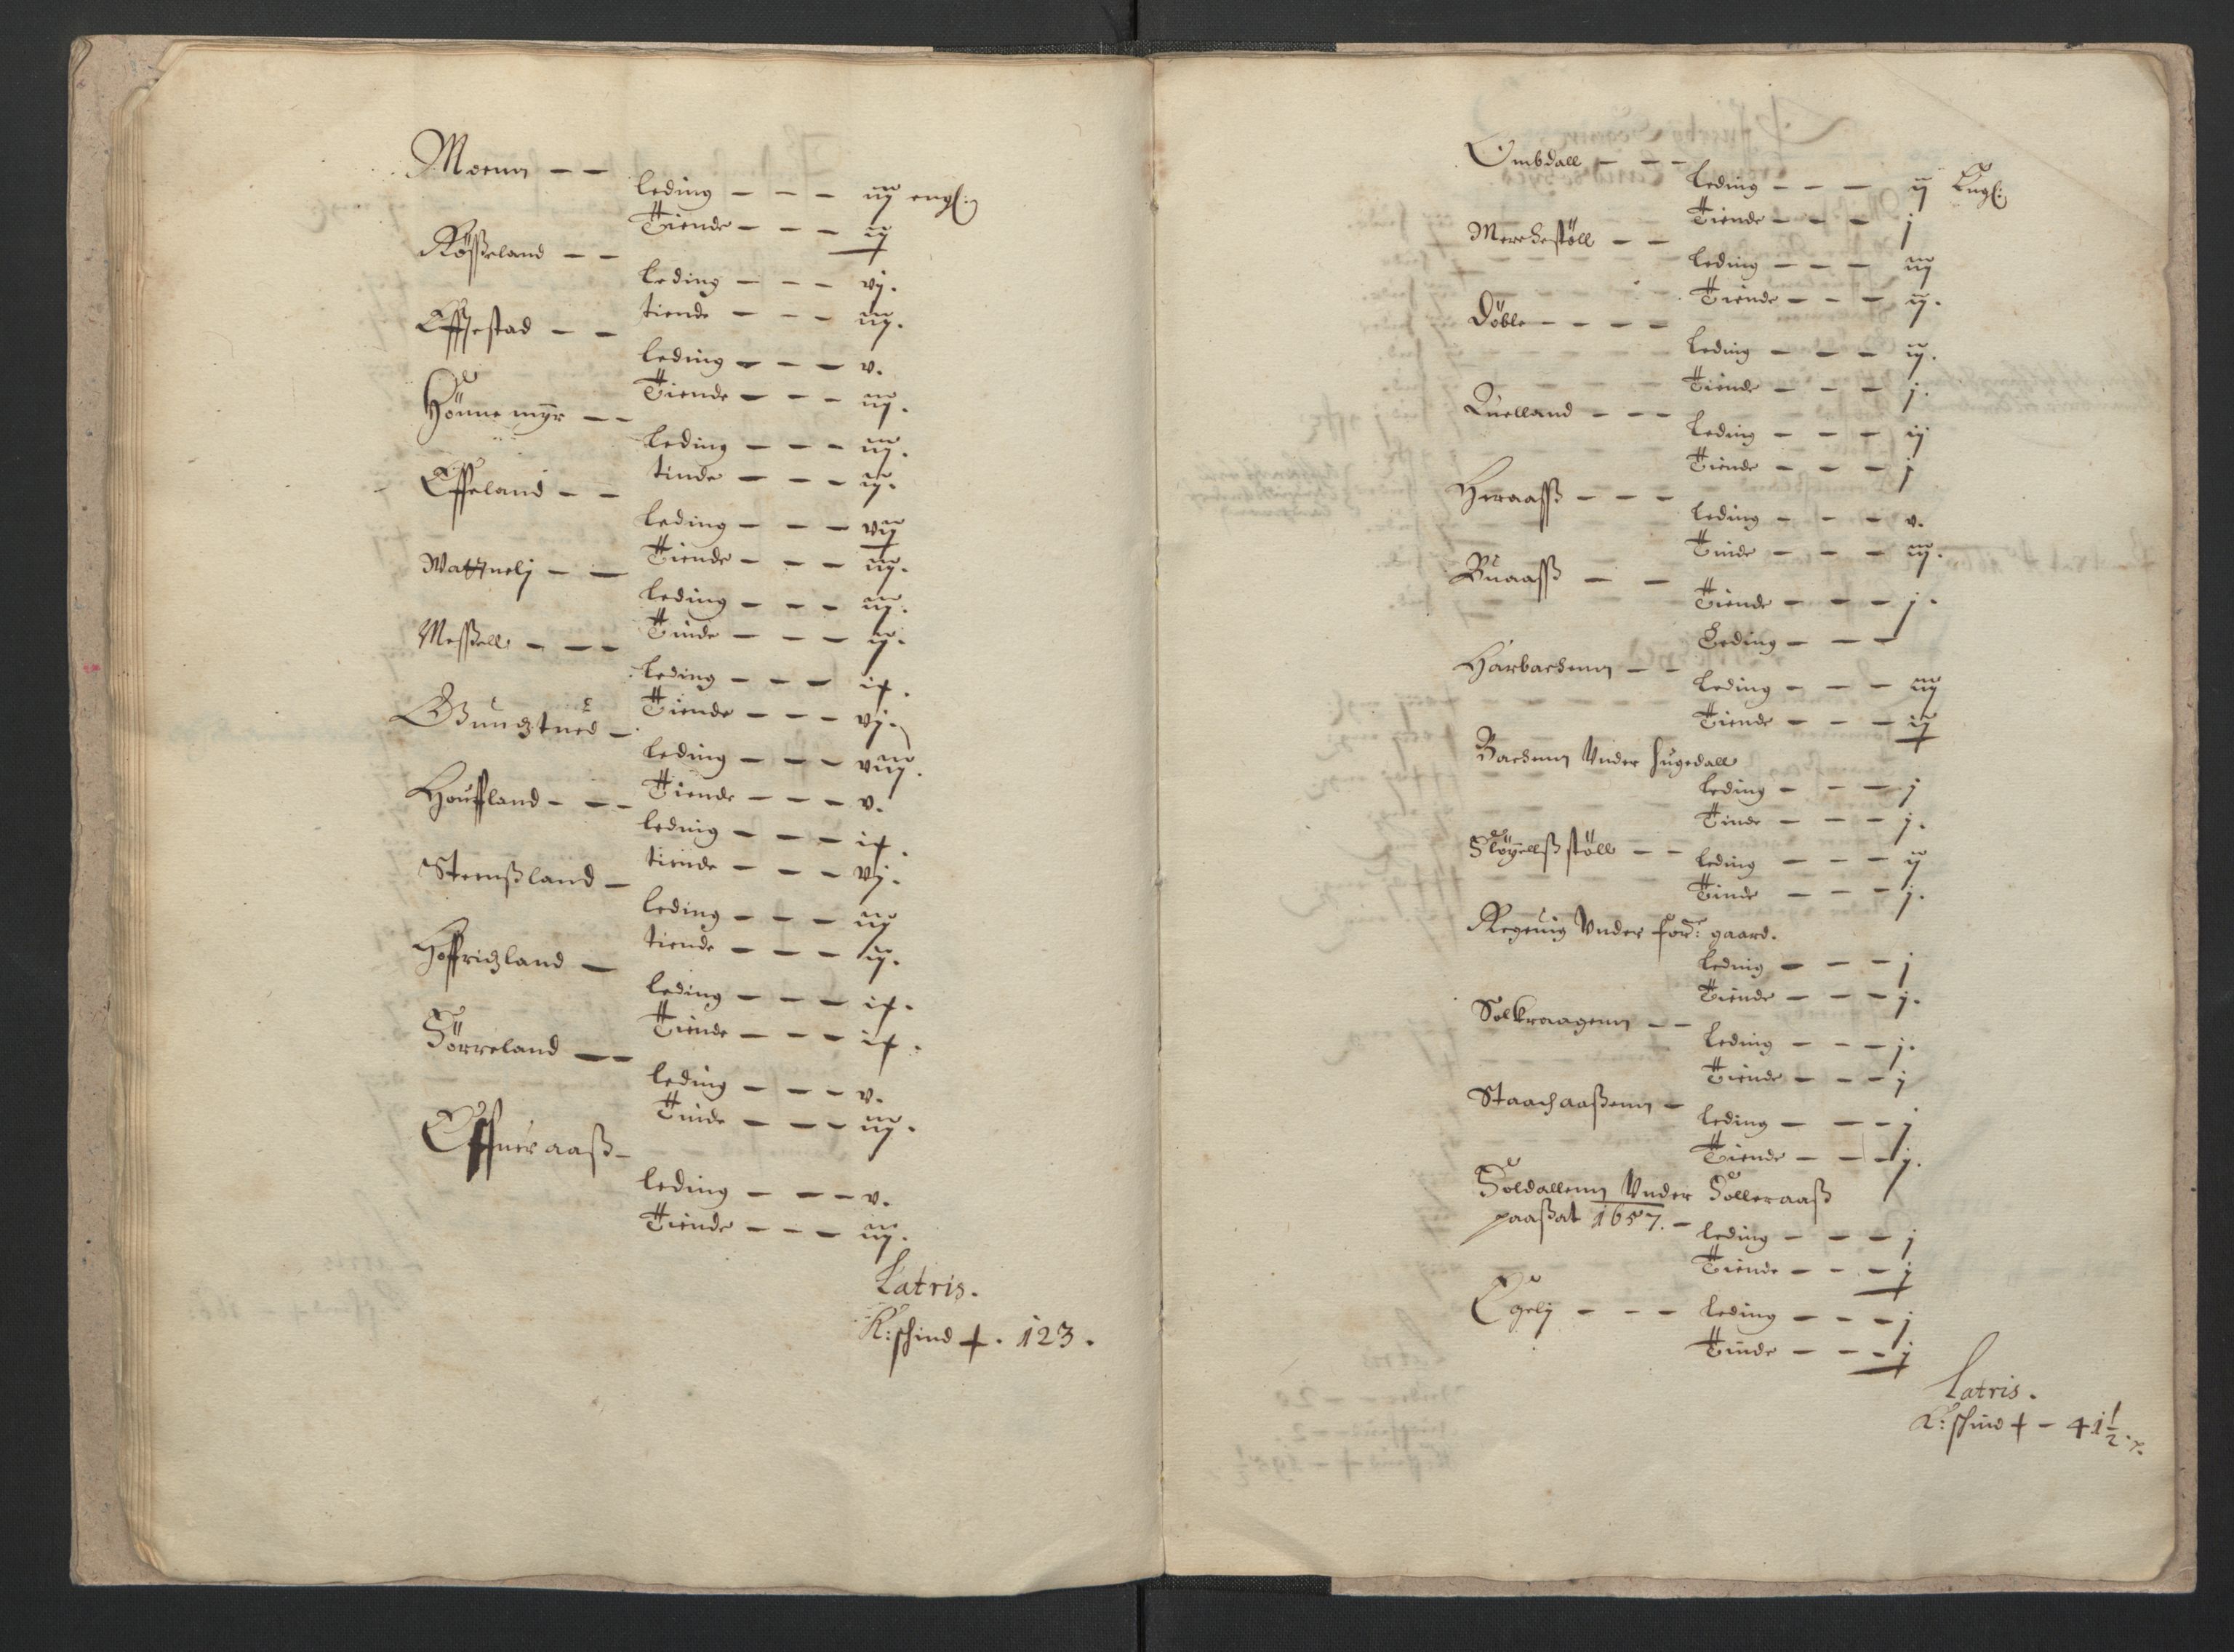 Moenn – –
leding – – – iij engl:
Tiende – – – ij
Røßeland – –
leding – – – vj.
tiende – – – iij.
Effiestad – –
leding – – – v.
Tiende – – – iij.
Hønnemyr – –
leding – – – iij.
tinde – – – ij.
Effeland – –
leding – – – vij
Tiende – – – iij.
Wattneli – –
leding – – – iij.
Tinde – – – ij.
Meßell – – –
leding – – – ix.
Tiende – – – vj.
leding – – – viij.
Tiende – – – v.
Houffland – – –
leding – – – ix.
tiende – – – vj.
Steenßland –
leding – – – iij
tiende – – – ij.
Høffridzland –
leding – – – ix.
Tiende – – – ix.
Sörreland – –
leding – – – v.
Tinde – – – iij.
Effueraaß –
leding – – – v.
Tiende – – – iij.
Latris.
K: schind + . 123.
Ombdall – – –
leding – – – ij Engl:
Tiende – – – j
Merckestøll – –
leding – – – iij
Tiende – – – ij.
Döble – – – –
leding – – – ij.
Tiende – – – j.
Quelland – – –
leding – – – ij
Tiende – – – j
Heraaß – – –
leding – – – v.
Tinde – – – iij.
Buaaß – –
Tiende – – – j.
Leding – – –
Harbachenn – –
leding – – – iij
Tiende – – – ij
Bachenn Vnder Hugedall
leding – – – j
Tinde – – – j.
Sløyellßstøll – –
leding – – – ij
Tinde – – – j.
Regeuig Vnder for: gaard.
leding – – – j
Tiende – – – j.
Solkraagenn – –
leding – – – j.
Tiende – – – j
Staachaaßenn –
leding – – – j
Tiende – – – j.
Soldallenn Vnder Solleraaß
paaßat 1657. – leding – – – j
Tiende – – – j
Ögelj – – – leding – – – j
Tinde – – – j
Latris.
K: schind + – 41 1/2